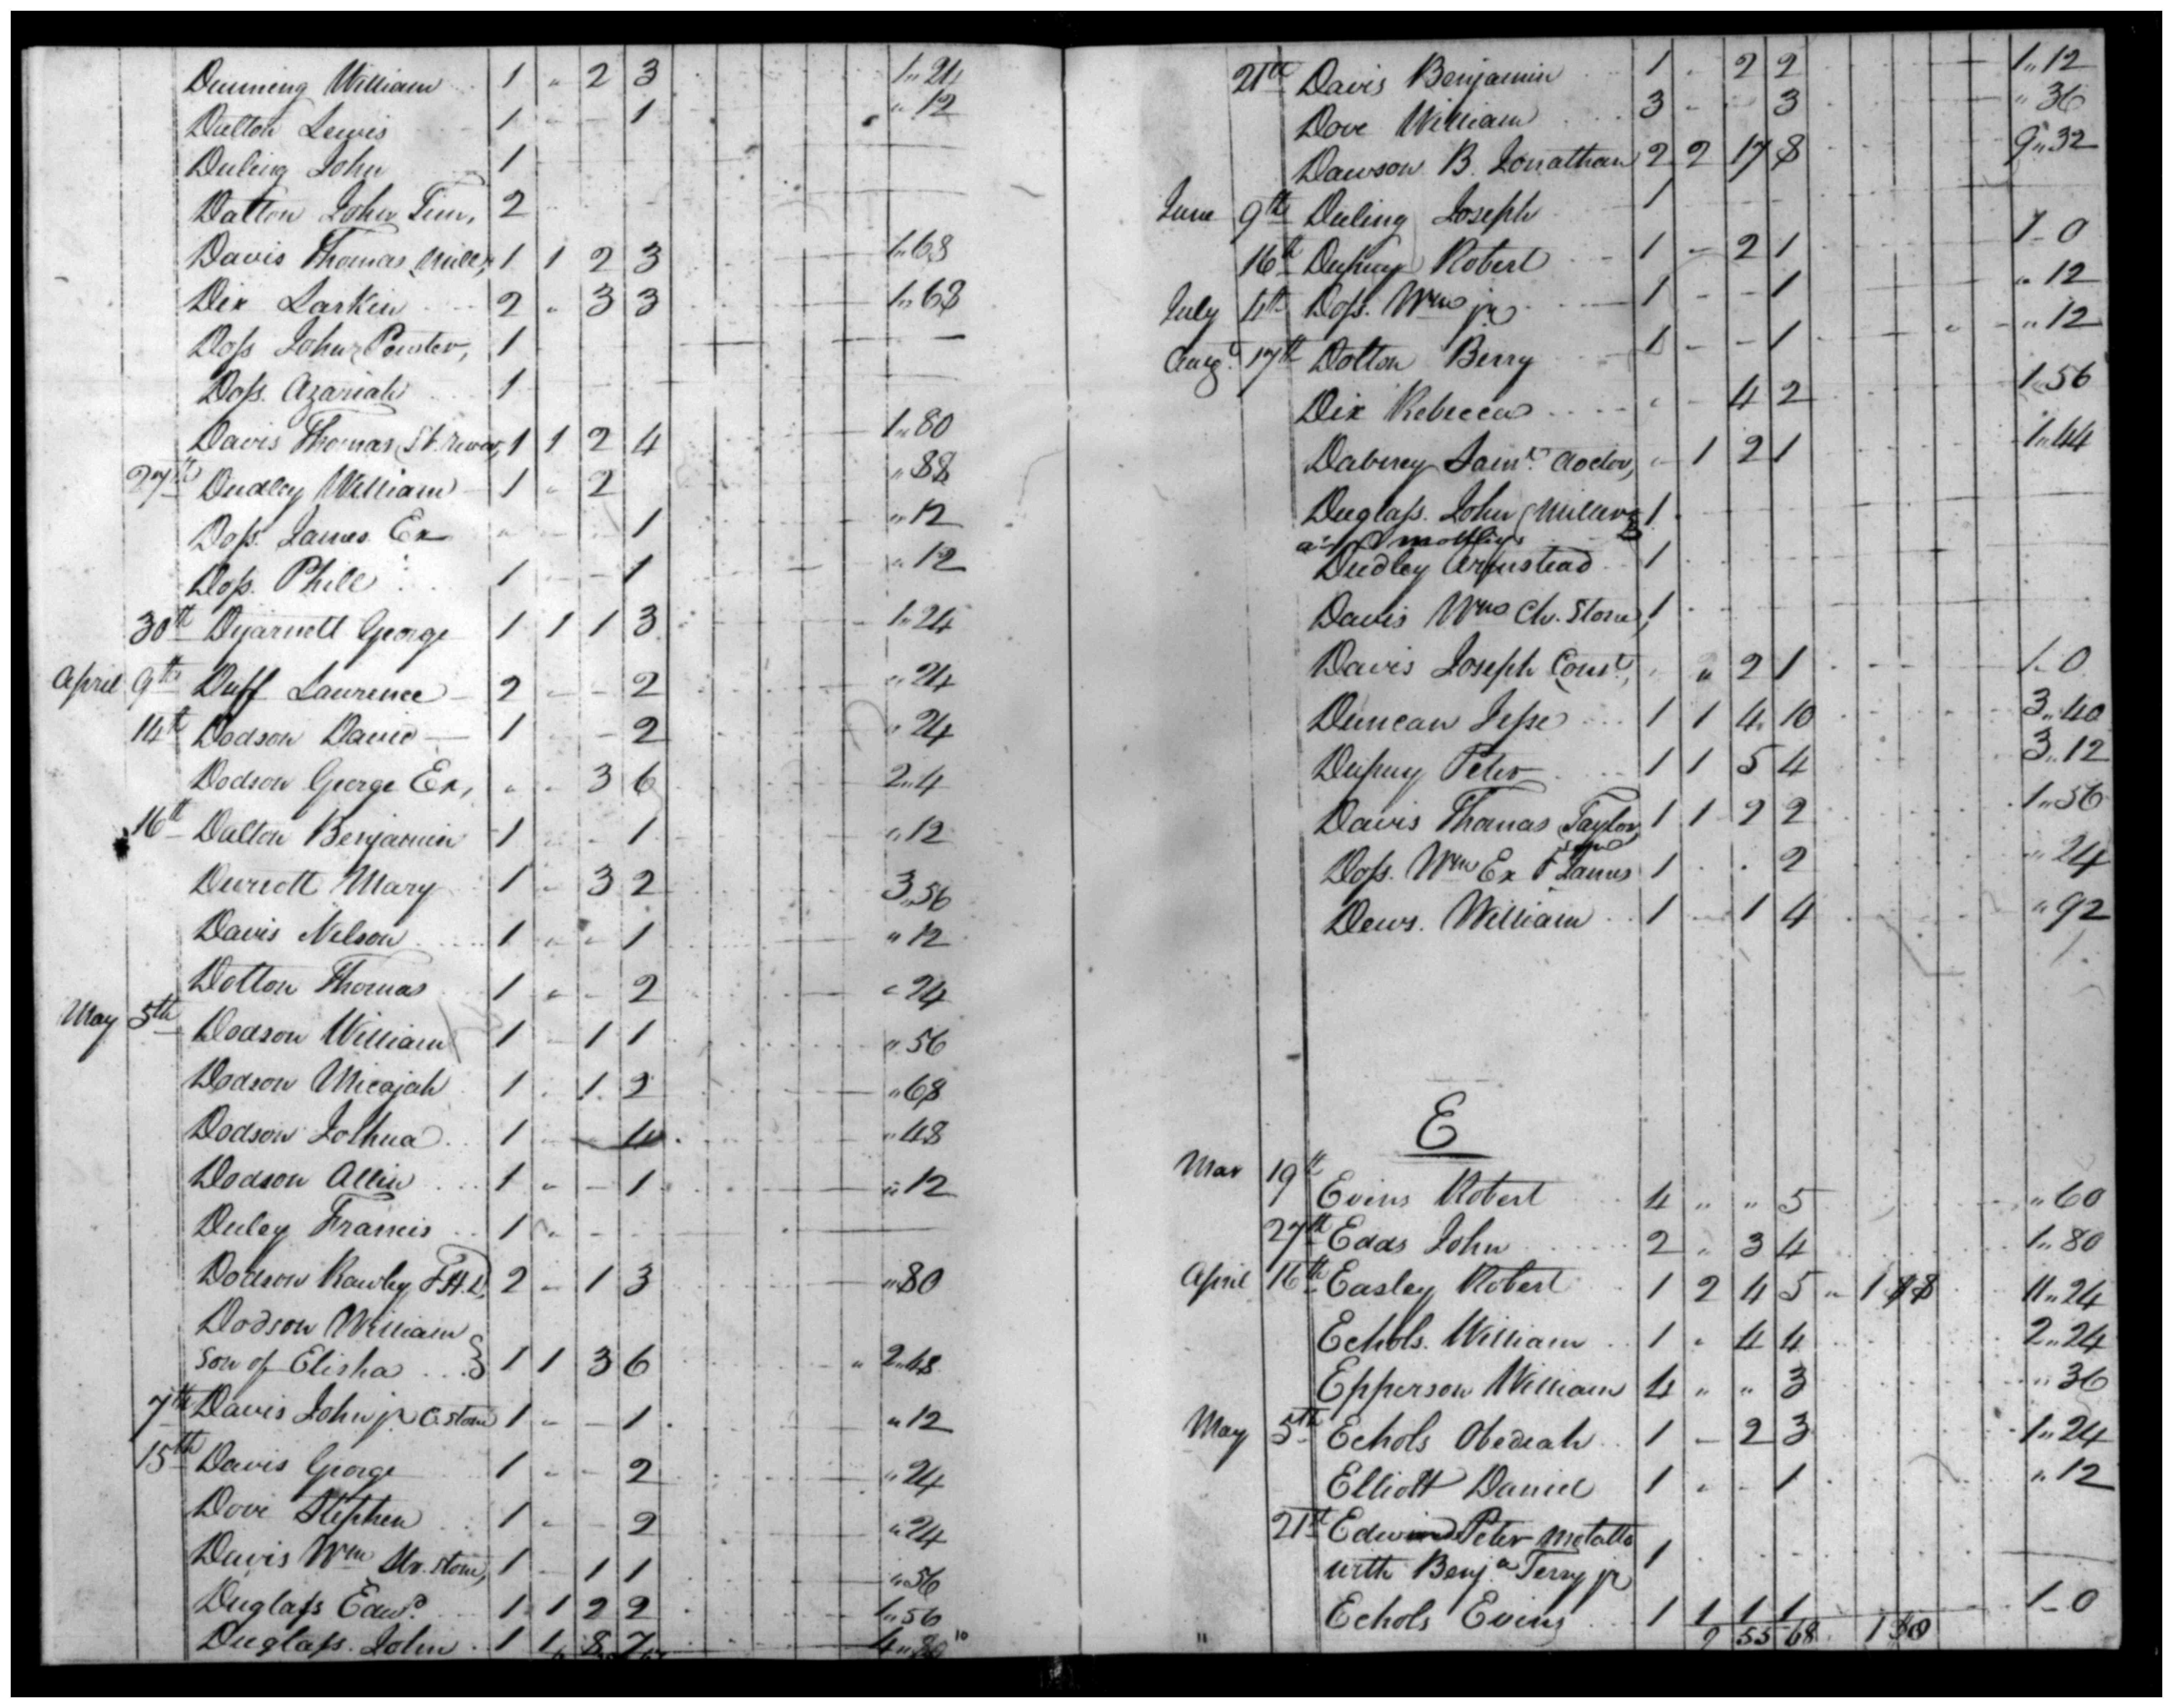 Dunning William 1 " 2 3 1"24
Dalton Lewis 1 - - 1 " 12
Duling John 1
Dalton John Tim, 2
Davis Thomas (Mill) 1 1 2 3 1"68
Dix Larkin 2 " 3 3 1"68
Doss John 1 —
Doss Azariah 1
Davis Thomas 1 1 2 4 1"80
27th Dudley William 1 " 2 "88
Doss James Ex " - - 1 "12
Doss Phill 1 - - 1 "12
30th Dejarnett George 1 1 1 3 1"24
April 9th Duff Lawrence 2 - - 2 "24
14th Dodson David 1 - - 2 "24
Dodson George Ex, " " 3 6 2"4
16th Dalton Benjamin 1 - - 1 "12
Durrott Mary 1 " 3 2 3"56
Davis Nelson 1 " " 1 "12
Dotton Thomas 1 " - 2 "24
May 5th Dodson William 1 - 1 1 "56
Dodson Micajah 1 . 1 2 "68
Dodson Joshua 1 - - 4 "48
Dodson Allin 1 " - 1 "12
Duley Francis 1 "
Dodson Rawley F.H.D, 2 - 1 3 "80
Dodson William
son of Elisha 1 1 3 6 " 2"48
7th Davis John jr C. Stone 1 " - 1 "12
15th Davis George 1 " - 2 "24
Dove Stephen 1 " - 2 "24
Davis Wm Str. Stone, 1 - 1 1 "56
Duglass Edwd. 1 1 2 2 1"56
Duglass John 1 1 8 7 4"80
21st Davis Benjamin 1 " 2 2 1"12
Dove William 3 - - 3 "36
Dawson B. Jonathan 2 2 17 8 9"32
June 9th Duling Joseph 1
16th Dupuy Robert 1 - 2 1 1-0
July 4th Doss Wm jr 1 - - 1 "12
Augt. 17th Dotton Berry 1 - - 1 "12
Dix Rebecca " - 4 2 1"56
Dabney Saml. doctor, " 1 2 1 1"44
Duglass John (Miller 1
Dudley Armstead 1
Davis Wm Ch. Stone, 1
Davis Joseph Const, " " 2 1 1-0
Duncan Jesse 1 1 4 10 3"40
Dupuy Peter 1 1 5 4 3"12
Davis Thomas (Taylor, 1 1 2 2 1"56
Doss Wm Ex F James 1 . . 2 "24
Dews William 1 - 1 4 "92
E
Mar 19th
Evins Robert 4 " " 5 "60
27th Edds John 2 " 3 4 1"80
April 16th Easley Robert 1 2 4 5 " 1 11"24
Echols William 1 " 4 4 2"24
Epperson William 4 " " 3 "36
May 5th Echols Obediah 1 - 2 3 1"24
Elliott Daniel 1 " - 1 "12
21st Peter Molatto
with Benja Terry jr 1
Echols Evins 1 1 1 1 1-0
2 55 68